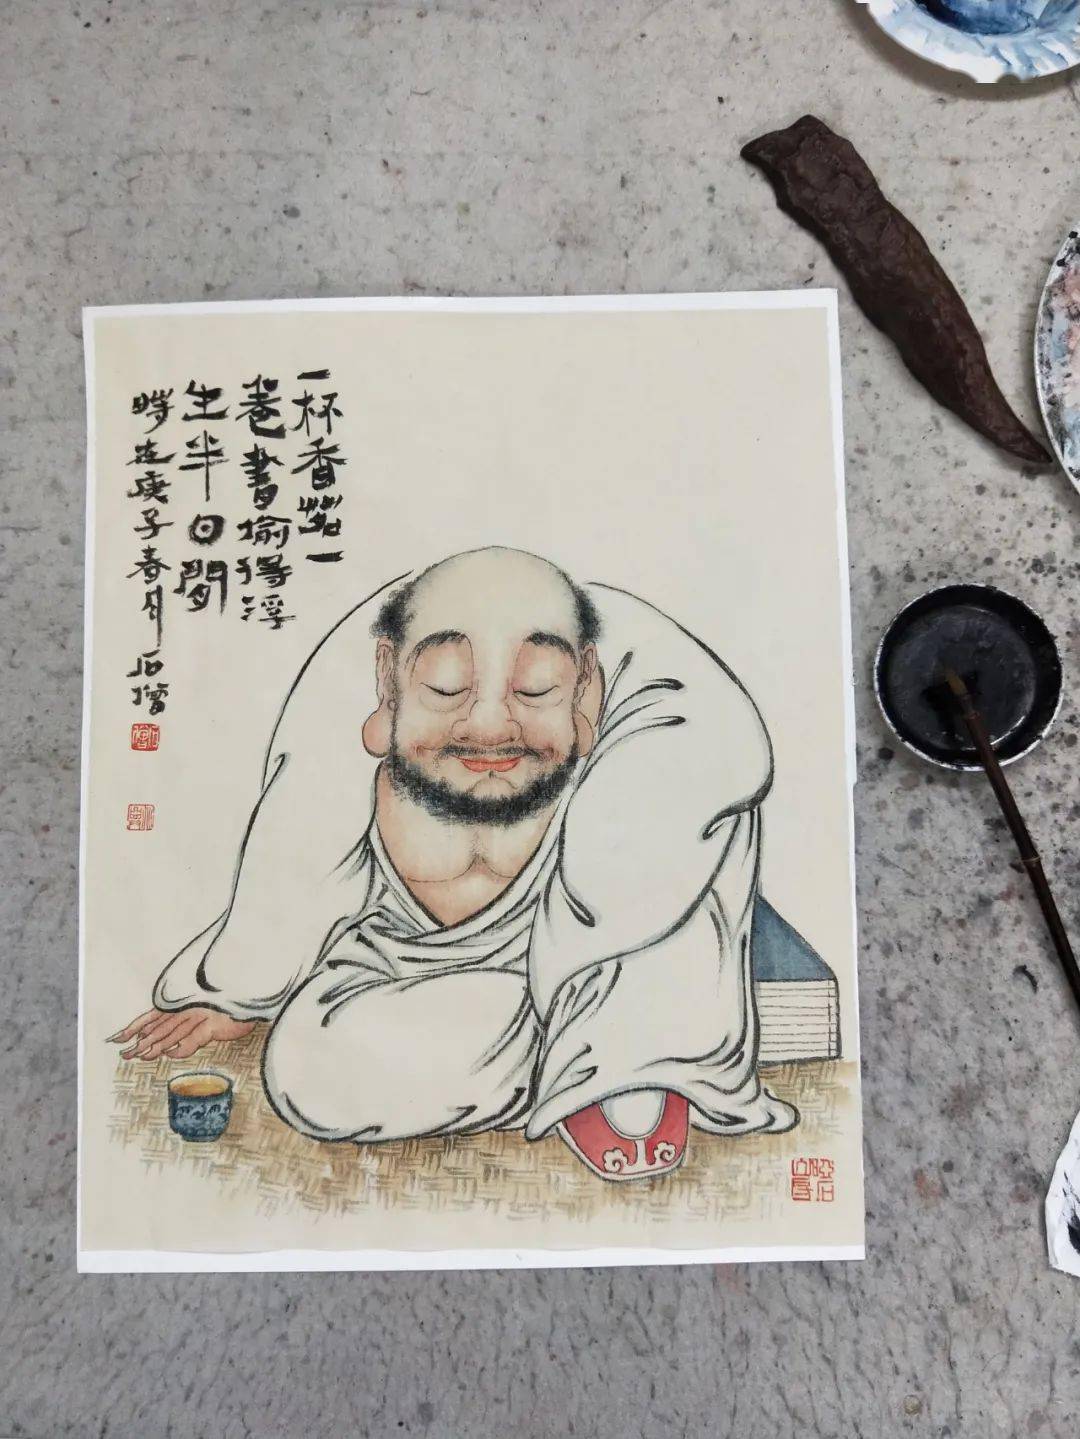 一杯香茗一
卷書偷得浮
生半日閒
時在庚子春月石僧